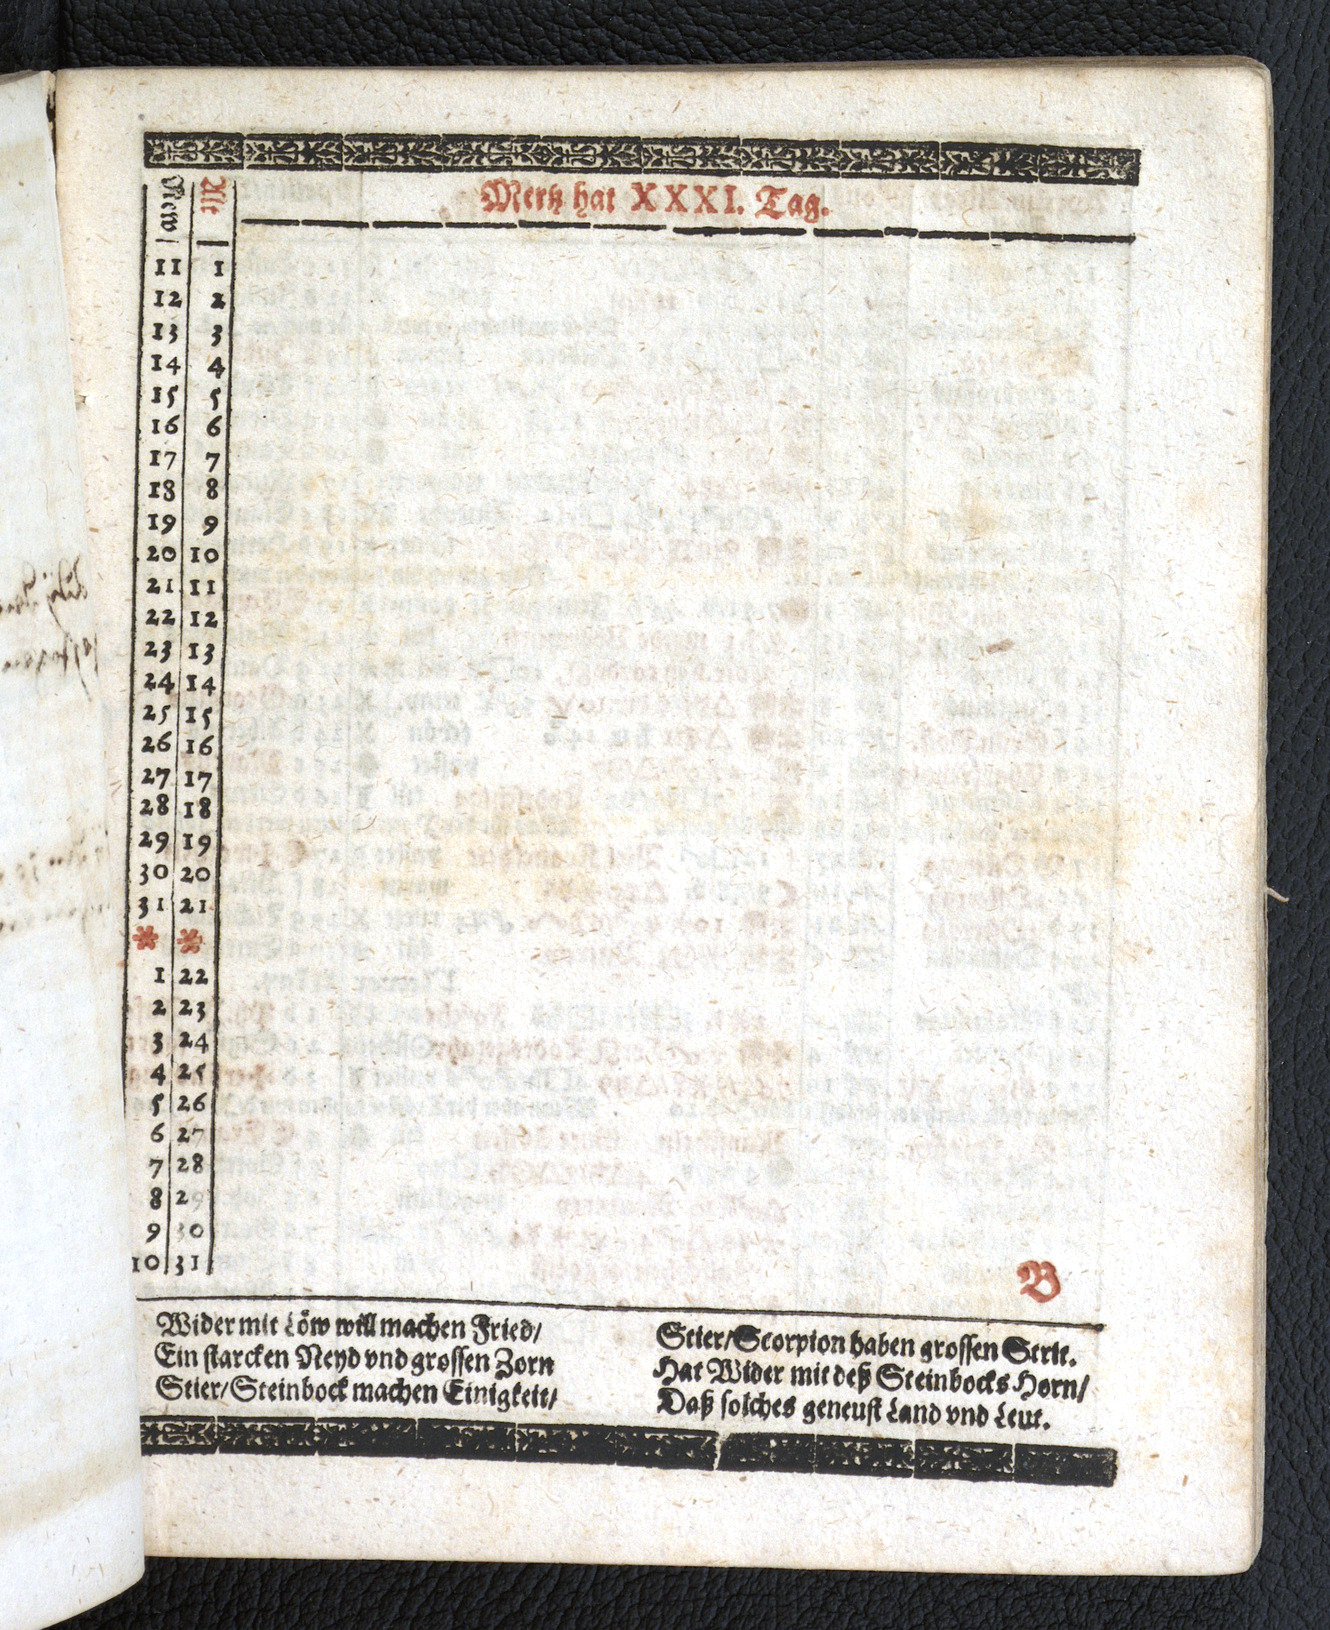 Mertz hat XXXI. Tag.
New Alt
11 1
12 2
13 3
14 4
15 5
16 6
17 7
18 8
19 9
20 10
21 11
22 12
23 13
24 14
25 15
26 16
27 17
28 18
29 19
30 20
31 21
* *
1 22
2 23
3 24
4 25
5 26
6 27
7 28
8 29
9 30
10 31
B
Wider mit Löw will machen Fried/
Ein starcken Neyd vnd grossen Zorn
Stier/Steinbock machen Einigkeit/
Stier/Scorpion haben grossen Streit.
Hat Wider mit deß Steinbocks Horn/
Daß solches geneust Land vnd Leut.